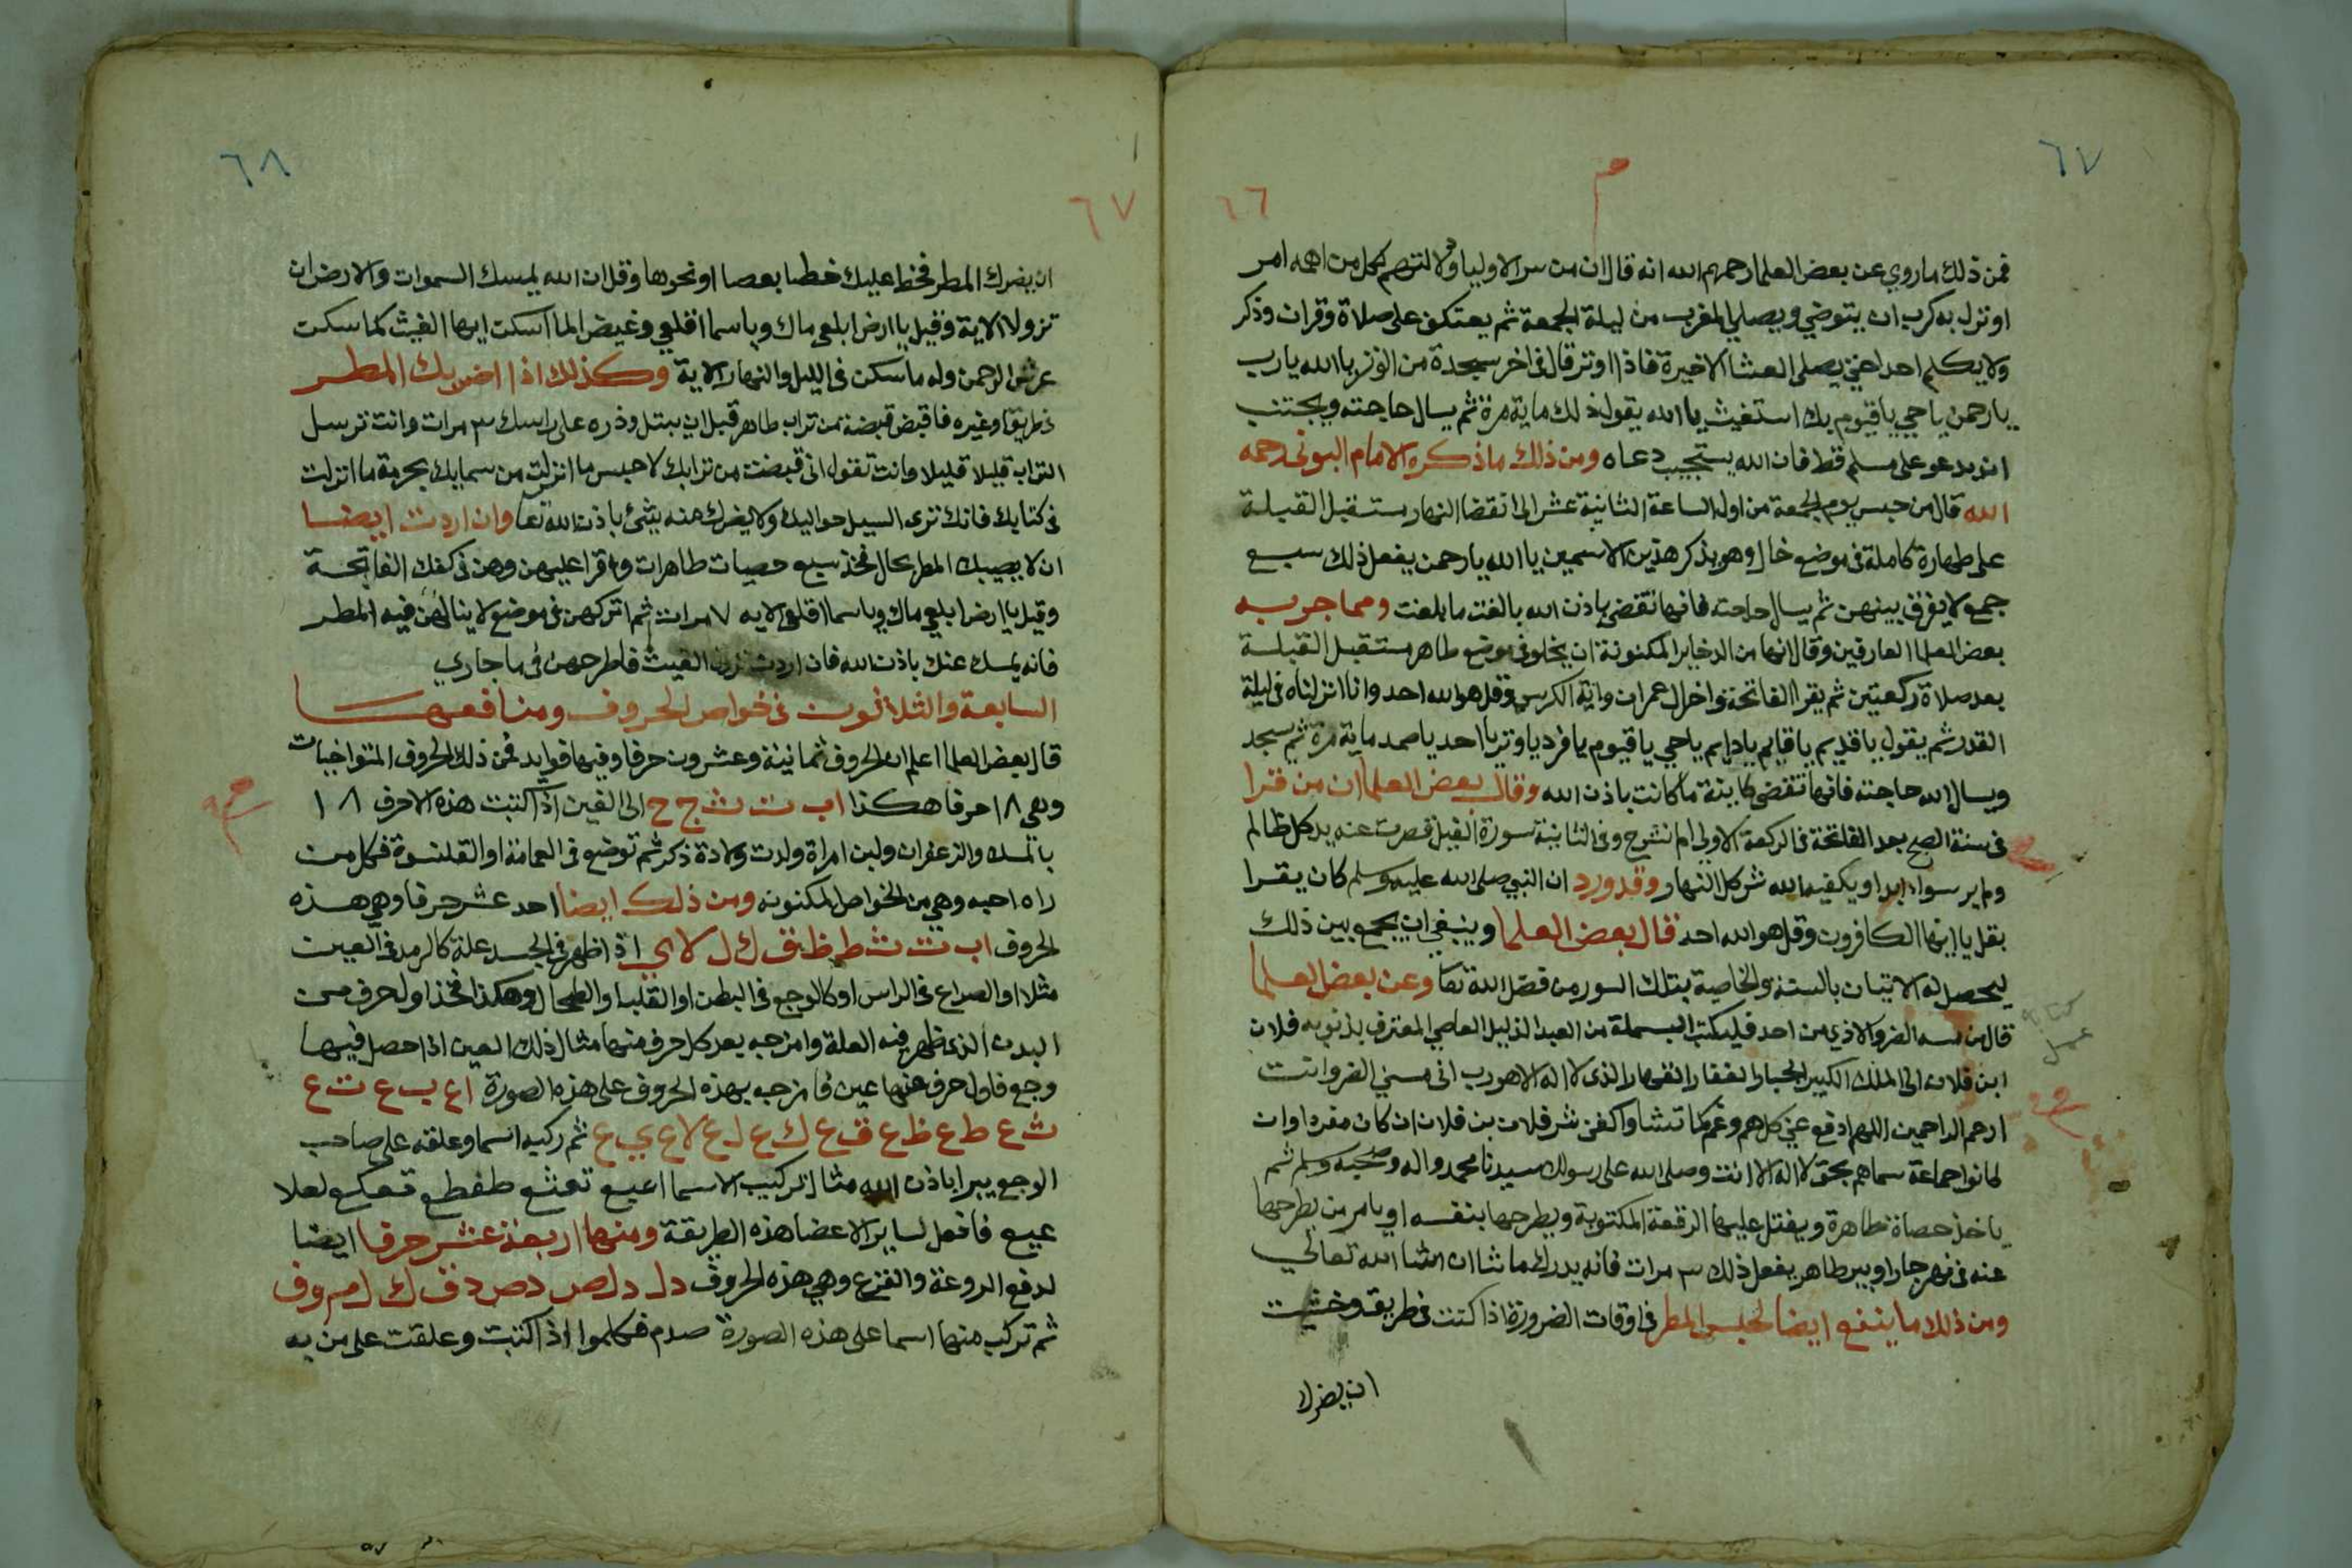 ٦٧
م
٦٦
فمن ذلك ما روي عن بعض العلما رحمهم الله انه قال ان من سر الاوليا وكل من اهمه امر
او نزل به كرب ان يتوضي ويصلي المغرب من ليلة الجمعة ثم يعتكف على صلاة وقران وذكر
ولا يكلم احدا حتى يصلي العشا الاخيرة فاذا اوتر قال في اخر سجدة من الوتر يا الله يا رب
يا رحمن يا حي يا قيوم بك استغيث يا الله يقول ذلك ماية مرة ثم يسال حاجته ويجتنب
ان يدعو على مسلم قط فان الله يستجيب دعاه ومن ذلك ما ذكره الامام البوني رحمه
الله قال من حبس يوم الجمعة من اول الساعة الثانية عشر الى انقضا النهار مستقبل القبلة
على طهارة كاملة في موضع خال وهو يذكر هذين الاسمين يا الله يا رحمن يفعل ذلك سبع
جمع لا يفرق بينهن ثم يسال حاجته فانها تقضى باذن الله بالغت ما بلغت ومما جربه
بعض العلما العارفين وقال انها من الدخاير المكنونة ان يخلو في موضع طاهر مستقبل القبلة
بعد صلاة ركعتين ثم يقرا الفاتحة واخر ال عمران واية الكرسي وقل هو الله احد وانا انزلناه في ليلة
القدر ثم يقول يا قديم يا قايم يا دايم يا حي يا قيوم يا فرد يا وتر يا احد يا صمد ماية مرة ثم يسجد
ويسال الله حاجته فانها تقضى كاينة ما كانت باذن الله وقال بعض العلما ان من قرا
في سنة الصبح بعد الفاتحة في الركعة الاولى الم نشرح وفي الثانية سورة الفيل قصرت عنه يد كل ظالم
ولم ير سوا ابدا ويكفيه الله شر كل النهار وقد ورد ان النبي صلى الله عليه وسلم كان يقرا
بقل يا ايها الكافرون وقل هو الله احد قال بعض العلما وينبغي ان يجمع بين ذلك
ليحصل له الاتيان بالسنة والخاصية بتلك السور من فضل الله تعا وعن بعض العلما
قال من مسه الضر والاذي من احد فليكتب البسملة من العبد الذليل العاصي المعترف بذنوبه فلان
ابن فلان الى الملك الكبير الجبار الغفار القهار الذي لا اله الا هو رب اني مسني الضر وانت
ارحم الراحمين اللهم ادفع عني كل هم وغم كما تشا واكفني شر فلان بن فلان ان كان مفردا وان
كانوا جماعة سماهم بحق لا اله الا انت وصلى الله على رسولك سيدنا محمد واله وصحبه وسلم ثم
ياخذ حصاة طاهرة ويفتل عليها الرقعة المكتوبة ويطرحها بنفسه او يامر من يطرحها
عنه في نهر جار او بير طاهر يفعل ذلك ٣ مرات فانه يدرك ما شا ان شا الله تعالى
ومن ذلك ما ينفع ايضا لحبس المطر في اوقات الضرورة اذا كنت في طريق وخشيت
ان يضرك
٦٨
٦٧
ان يضرك المطر فخط عليك خطا بعصا او نحوها وقل ان الله يمسك السموات والارض ان
تزولا الاية وقيل يا ارض ابلعي ماك ويا سما اقلعي وغيض الما اسكت ايها الغيث كما سكت
عرش الرحمن وله ما سكن في الليل والنهار الاية وكذلك اذا اضر بك المطر
في طريق او غيره فاقبض قبضة من تراب طاهر قبل ان يبتل وذره على راسك ٣ مرات وانت ترسل
التراب قليلا قليلا وانت تقول اني قبضت من ترابك لاحبس ما انزلت من سمايك بحرمة ما انزلت
في كتابك فانك ترى السيل حواليك ولا يضرك منه شئ باذن الله تعا وان اردت ايضا
ان لا يصيبك المطر بحال فخذ سبع حصيات طاهرات واقرا عليهن وهن في كفك الفاتحة
وقيل يا ارض ابلعي ماك ويا سما اقلعي الايه ٧ مرات ثم اتركهن في موضع لا ينالهن فيه المطر
فانه يمسك عنك باذن الله فان اردت نزول الغيث فاطرحهن في ما جاري
السابعة والثلاثون في خواص الحروف ومنافعها
قال بعض العلما اعلم ان الحروف ثمانية وعشرون حرفا وفيها فوايد فمن ذلك الحروف المتواخيات
وهي ١٨ حرفا هكذا اب ت ث ج ح الى الغين اذا كتبت هذه الاحرف ١٨
بالمسك والزعفران ولبن امراة ولدت ولادة ذكر ثم توضع في العمامة او القلنسوة فكل من
راه احبه وهي من الخواص المكنونه ومن ذلك ايضا احد عشر حرفا وهي هذه
الحروف اب ت ث ط ظ ف ك ل لا ي اذا ظهر في الجسد علة كالرمد في العين
مثلا او الصداع في الراس او كالوجع في البطن او القلب او الطحال وهكذا فخذ اول حرف من
البدن الذي ظهر فيه العلة وامزجه بعد كل حرف منها مثال ذلك العين اذا حصل فيها
وجع فاول حرف منها عين فامزجه بهذه الحروف على هذه الصورة ا ع ب ع ت ع
ث ع ط ع ظ ع ف ع ك ع ل ع لا ع ي ع ثم ركبه اسما وعلقه على صاحب
الوجع يبرا باذن الله مثال تركيب الاسما اعبع تعثع طعظع فعكع لعلا
عيع فافعل لساير الاعضا هذه الطريقة ومنها اربعة عشر حرفا ايضا
لدفع الروعة والفزع وهي هذه الحروف دل دلص دص دف ك ل م روف
ثم تركب منها اسما على هذه الصورة صدم فكلموا اذا كتبت وعلقت على من به